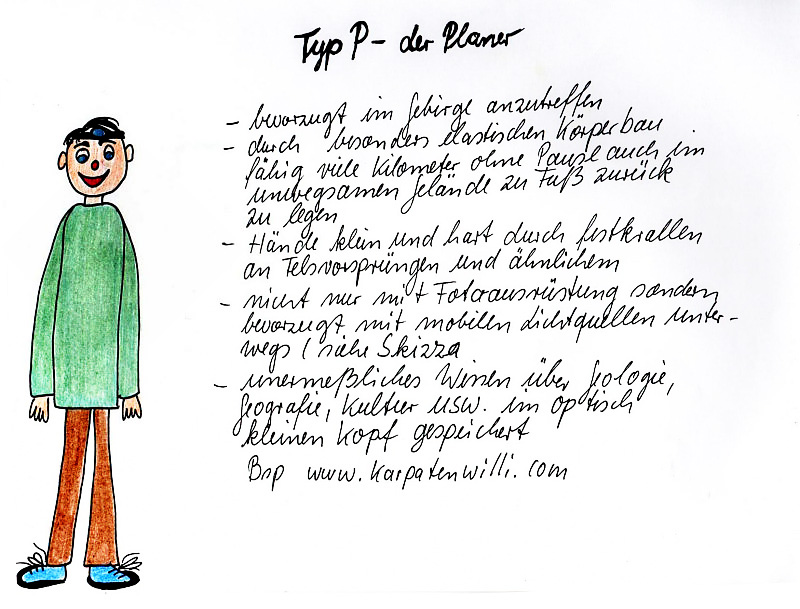 Typ P - der Planer
- bevorzugt im Gebirge anzutreffen
- durch besonders elastischen Körperbau
fähig viele Kilometer ohne Pause auch im
unwegsamen Gelände zu Fuß zurück
zu legen
- Hände klein und hart durch festkrallen
an Felsvorsprüngen und ähnlichem
- nicht nur mit Fotoausrüstung sondern
bevorzugt mit mobilen Lichtquellen unter-
wegs (siehe Skizze
- unermeßliches Wissen über Geologie,
Geografie, Kultur usw. im optisch
kleinen Kopf gespeichert
Bsp www.karpatenwilli.com